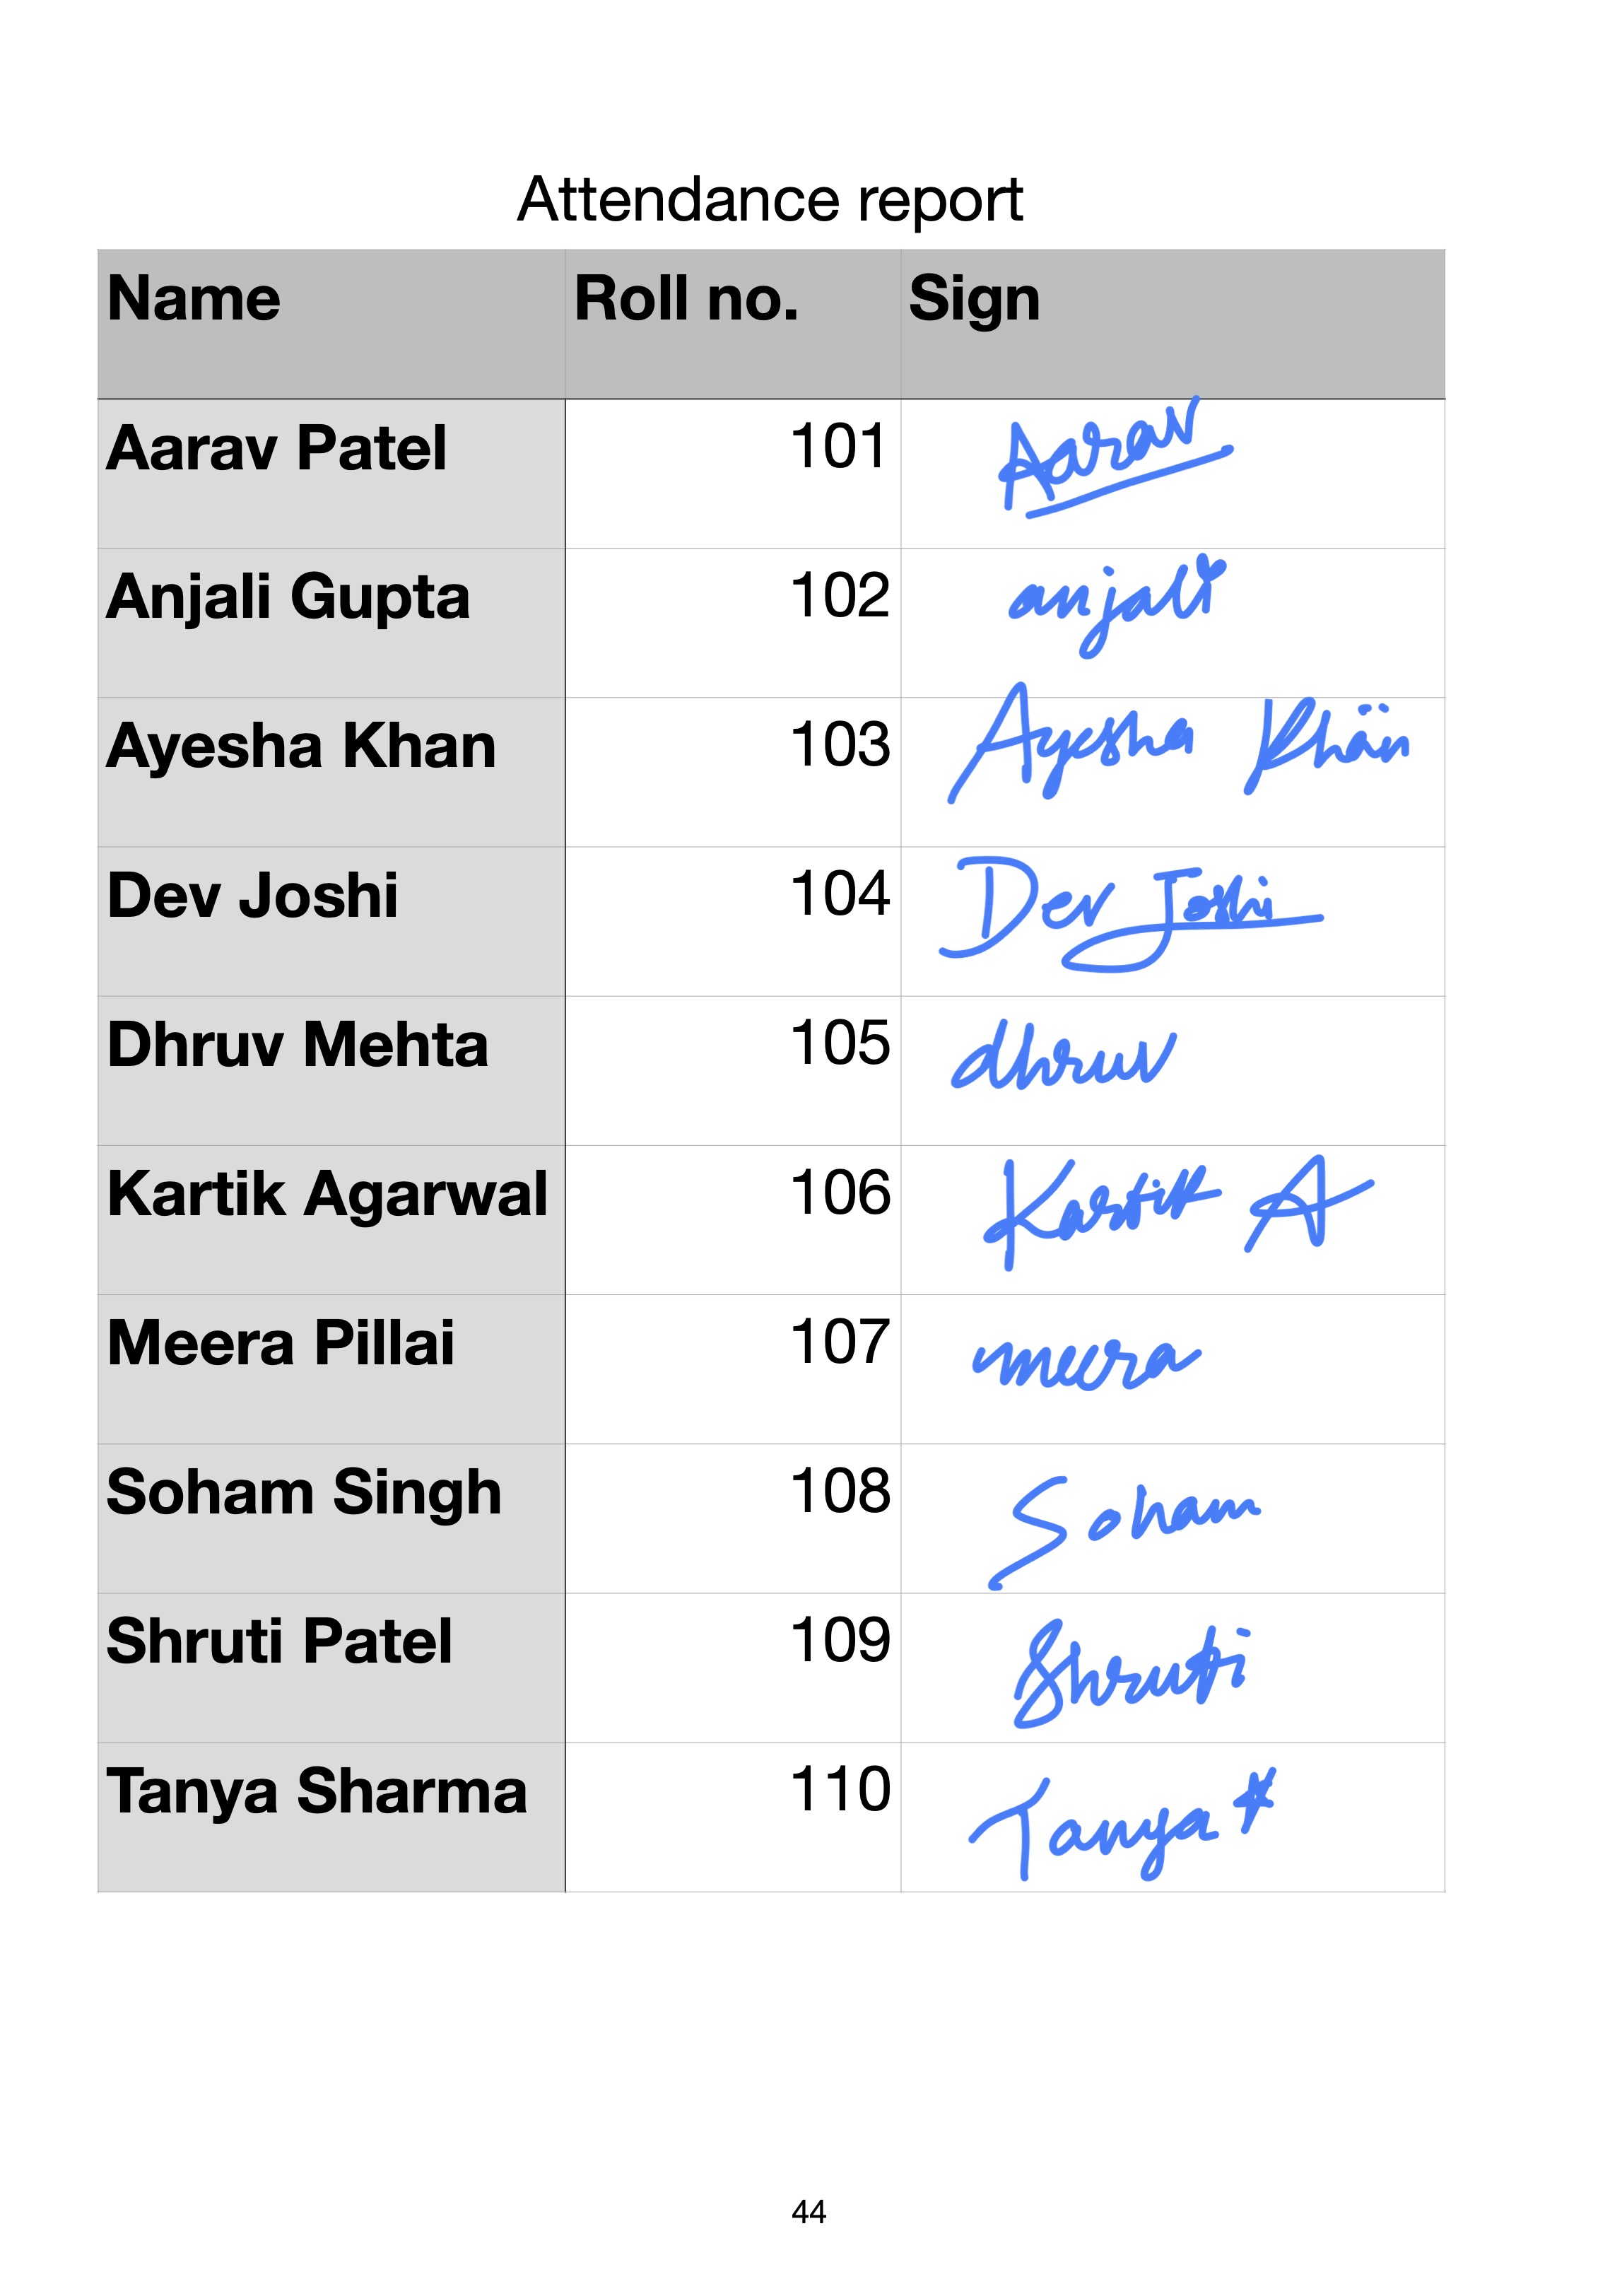 Attendance report
Name Roll no. Sign
Aarav Patel 101 Aarav
Anjali Gupta 102 anjali
Ayesha Khan 103 Ayesha Khan
Dev Joshi 104 Dev Joshi
Dhruv Mehta 105 dhruv
Kartik Agarwal 106 Kartik A
Meera Pillai 107 meera
Soham Singh 108 Soham
Shruti Patel 109 Shruti
Tanya Sharma 110 Tanya
44